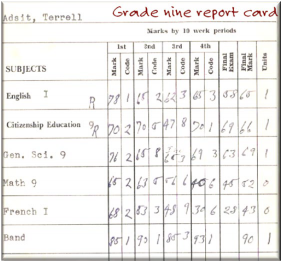 Adsit, Terrell Grade nine report card
Marks by 10 week periods
1st 2nd 3rd 4th
SUBJECTS Mark Code Mark Code Mark Code Mark Code Final Exam Final Mark Units
English I R 78 1 65 2 62 3 65 3 58 65 1
Citizenship Education 9 R 70 2 70 5 47 8 70 1 69 66 1
Gen. Sci. 9 76 2 65 8 69 3 63 69 1
Math 9 65 2 65 5 6 6 45 52 0
French I 68 2 53 3 48 9 30 6 28 43 0
Band 85 1 90 1 85 3 93 1 90 1